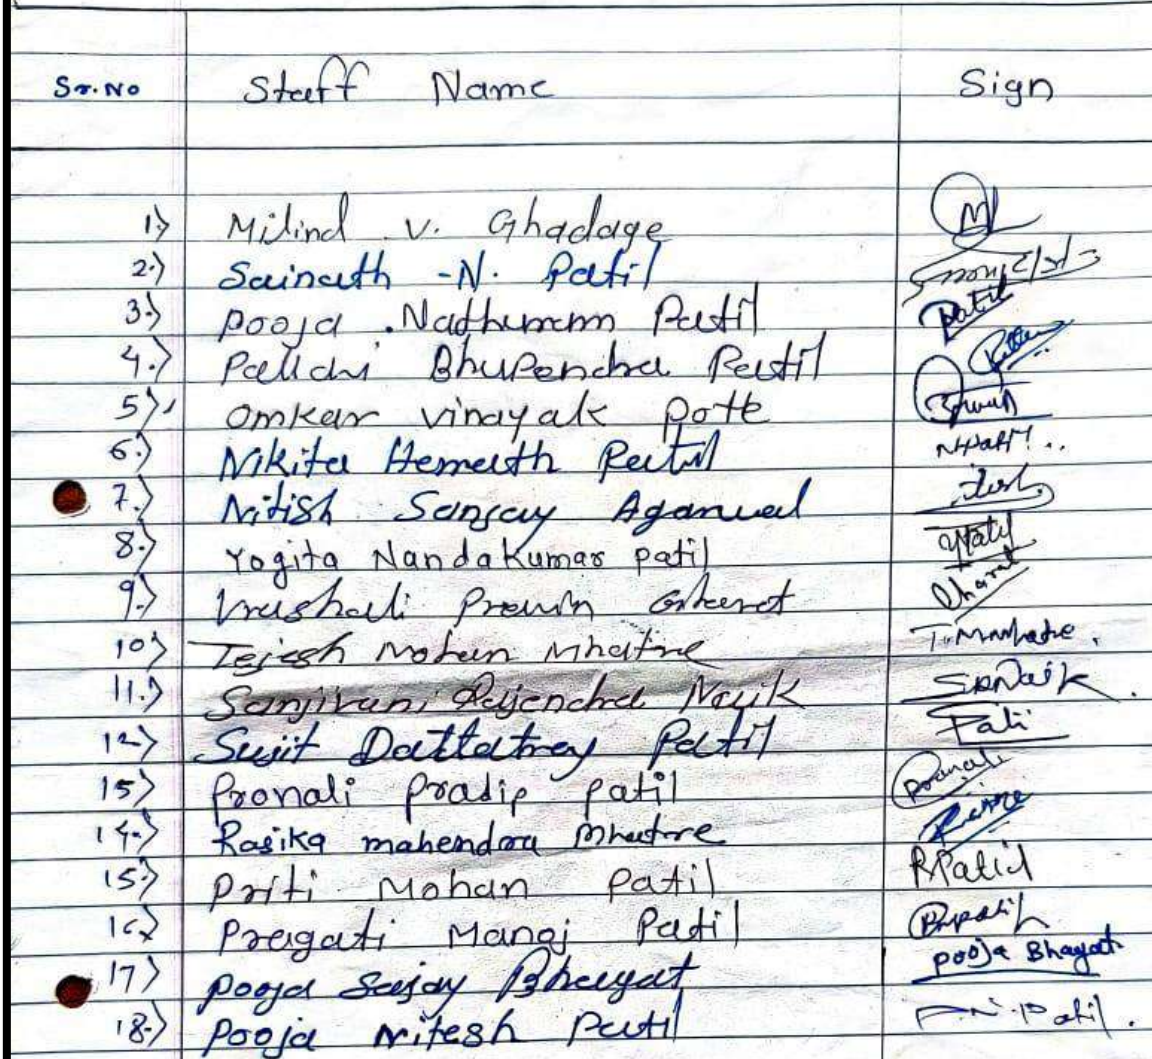 Sr.No Staff Name Sign
1) Milind V. Ghadage
2) Sainath -N. Patil
3) Pooja . Nathuram Patil Patil
4.) Pallavi Bhupendra Patil
5) Omkar Vinayak Pote
6.) Nikita Hemanth Patil
7.) Nitish Sanjay Agarwal
8.) Yogita Nandakumar patil YPatil
9.) Vrushali Pravin Gharat Gharat
10) Tejesh Mohan Mhatre T.M.Mhatre.
11.) Sanjivani Rajendra Naik SRNaik.
12) Sujit Dattatray Patil Pati
15) Pronali Pradip patil Pranali
14.) Rasika mahendra Mhatre
15) Priti Mohan Patil PMPatil
16) Pragati Manoj Patil
17) Pooja Sajay Bhagat Pooja Bhagat
18.) Pooja Nitesh Patil P.N.Patil.